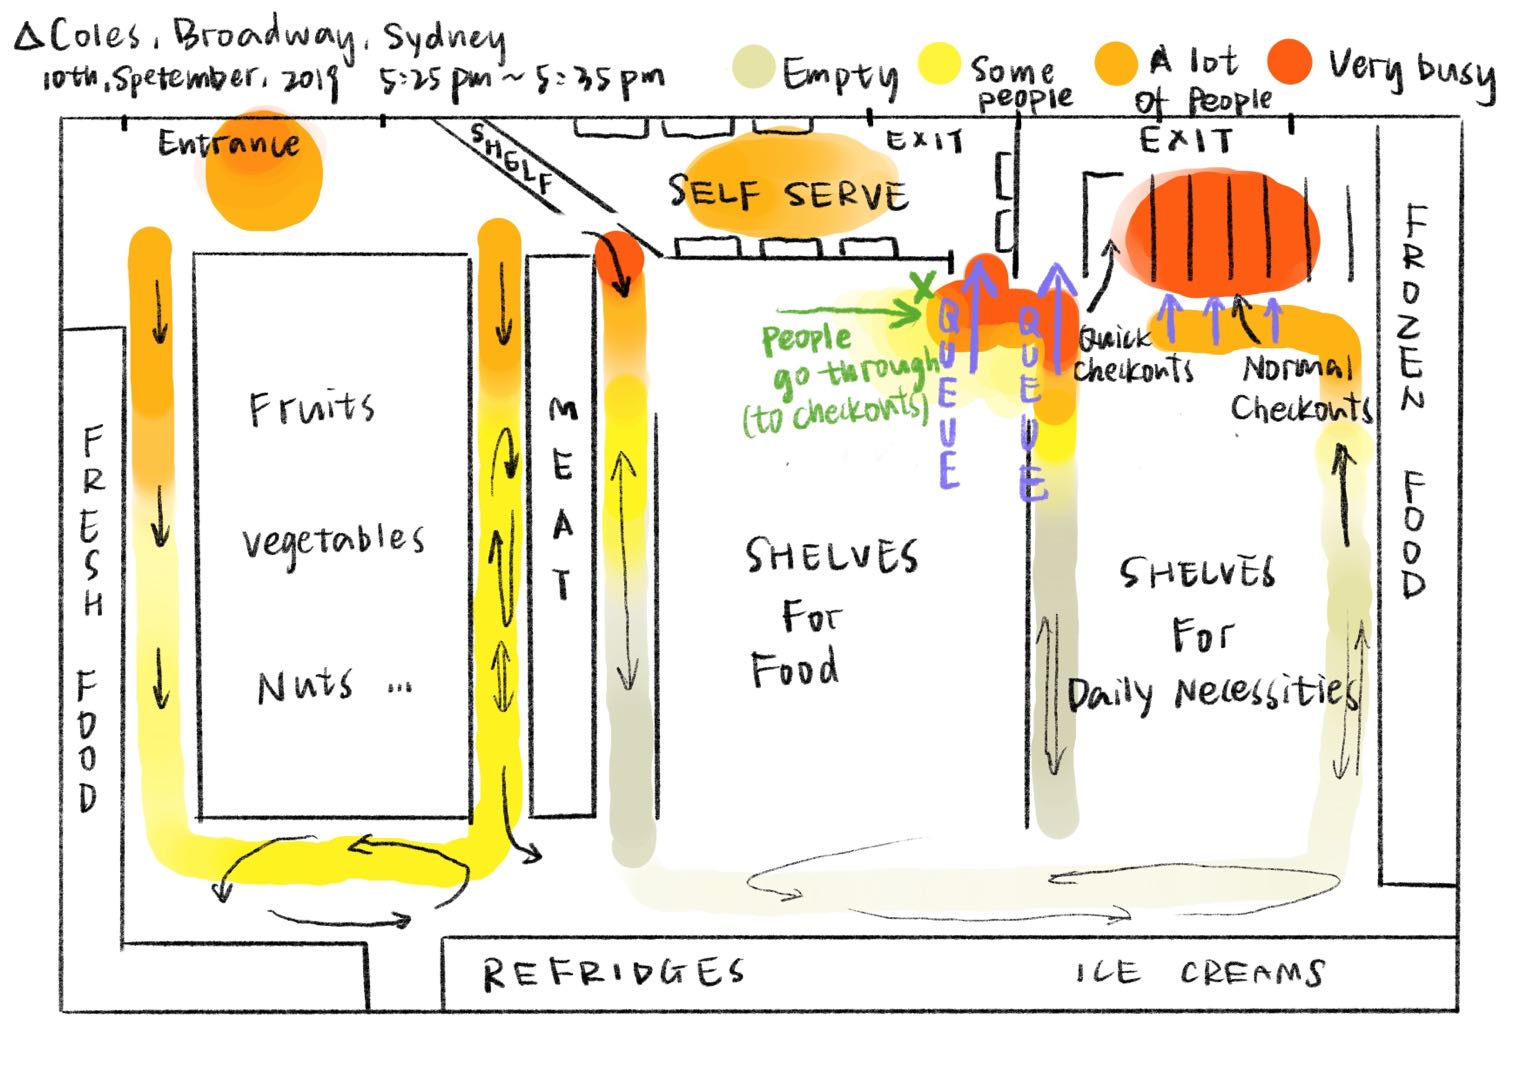 △ Coles, Broadway, Sydney
10th, Spetember, 2019 5:25 pm ~ 5:35 pm
Empty
Some
people
A lot
of People
Very busy
Entrance
SHELF
SELF SERVE
EXIT
EXIT
FRESH FOOD
Fruits
vegetables
Nuts ...
MEAT
People
go through
(to checkouts)
QUEUE
QUEUE
Quick
checkouts
Normal
Checkouts
FROZEN FOOD
SHELVES
For
Food
SHELVES
For
Daily Necessities
REFRIDGES
ICE CREAMS